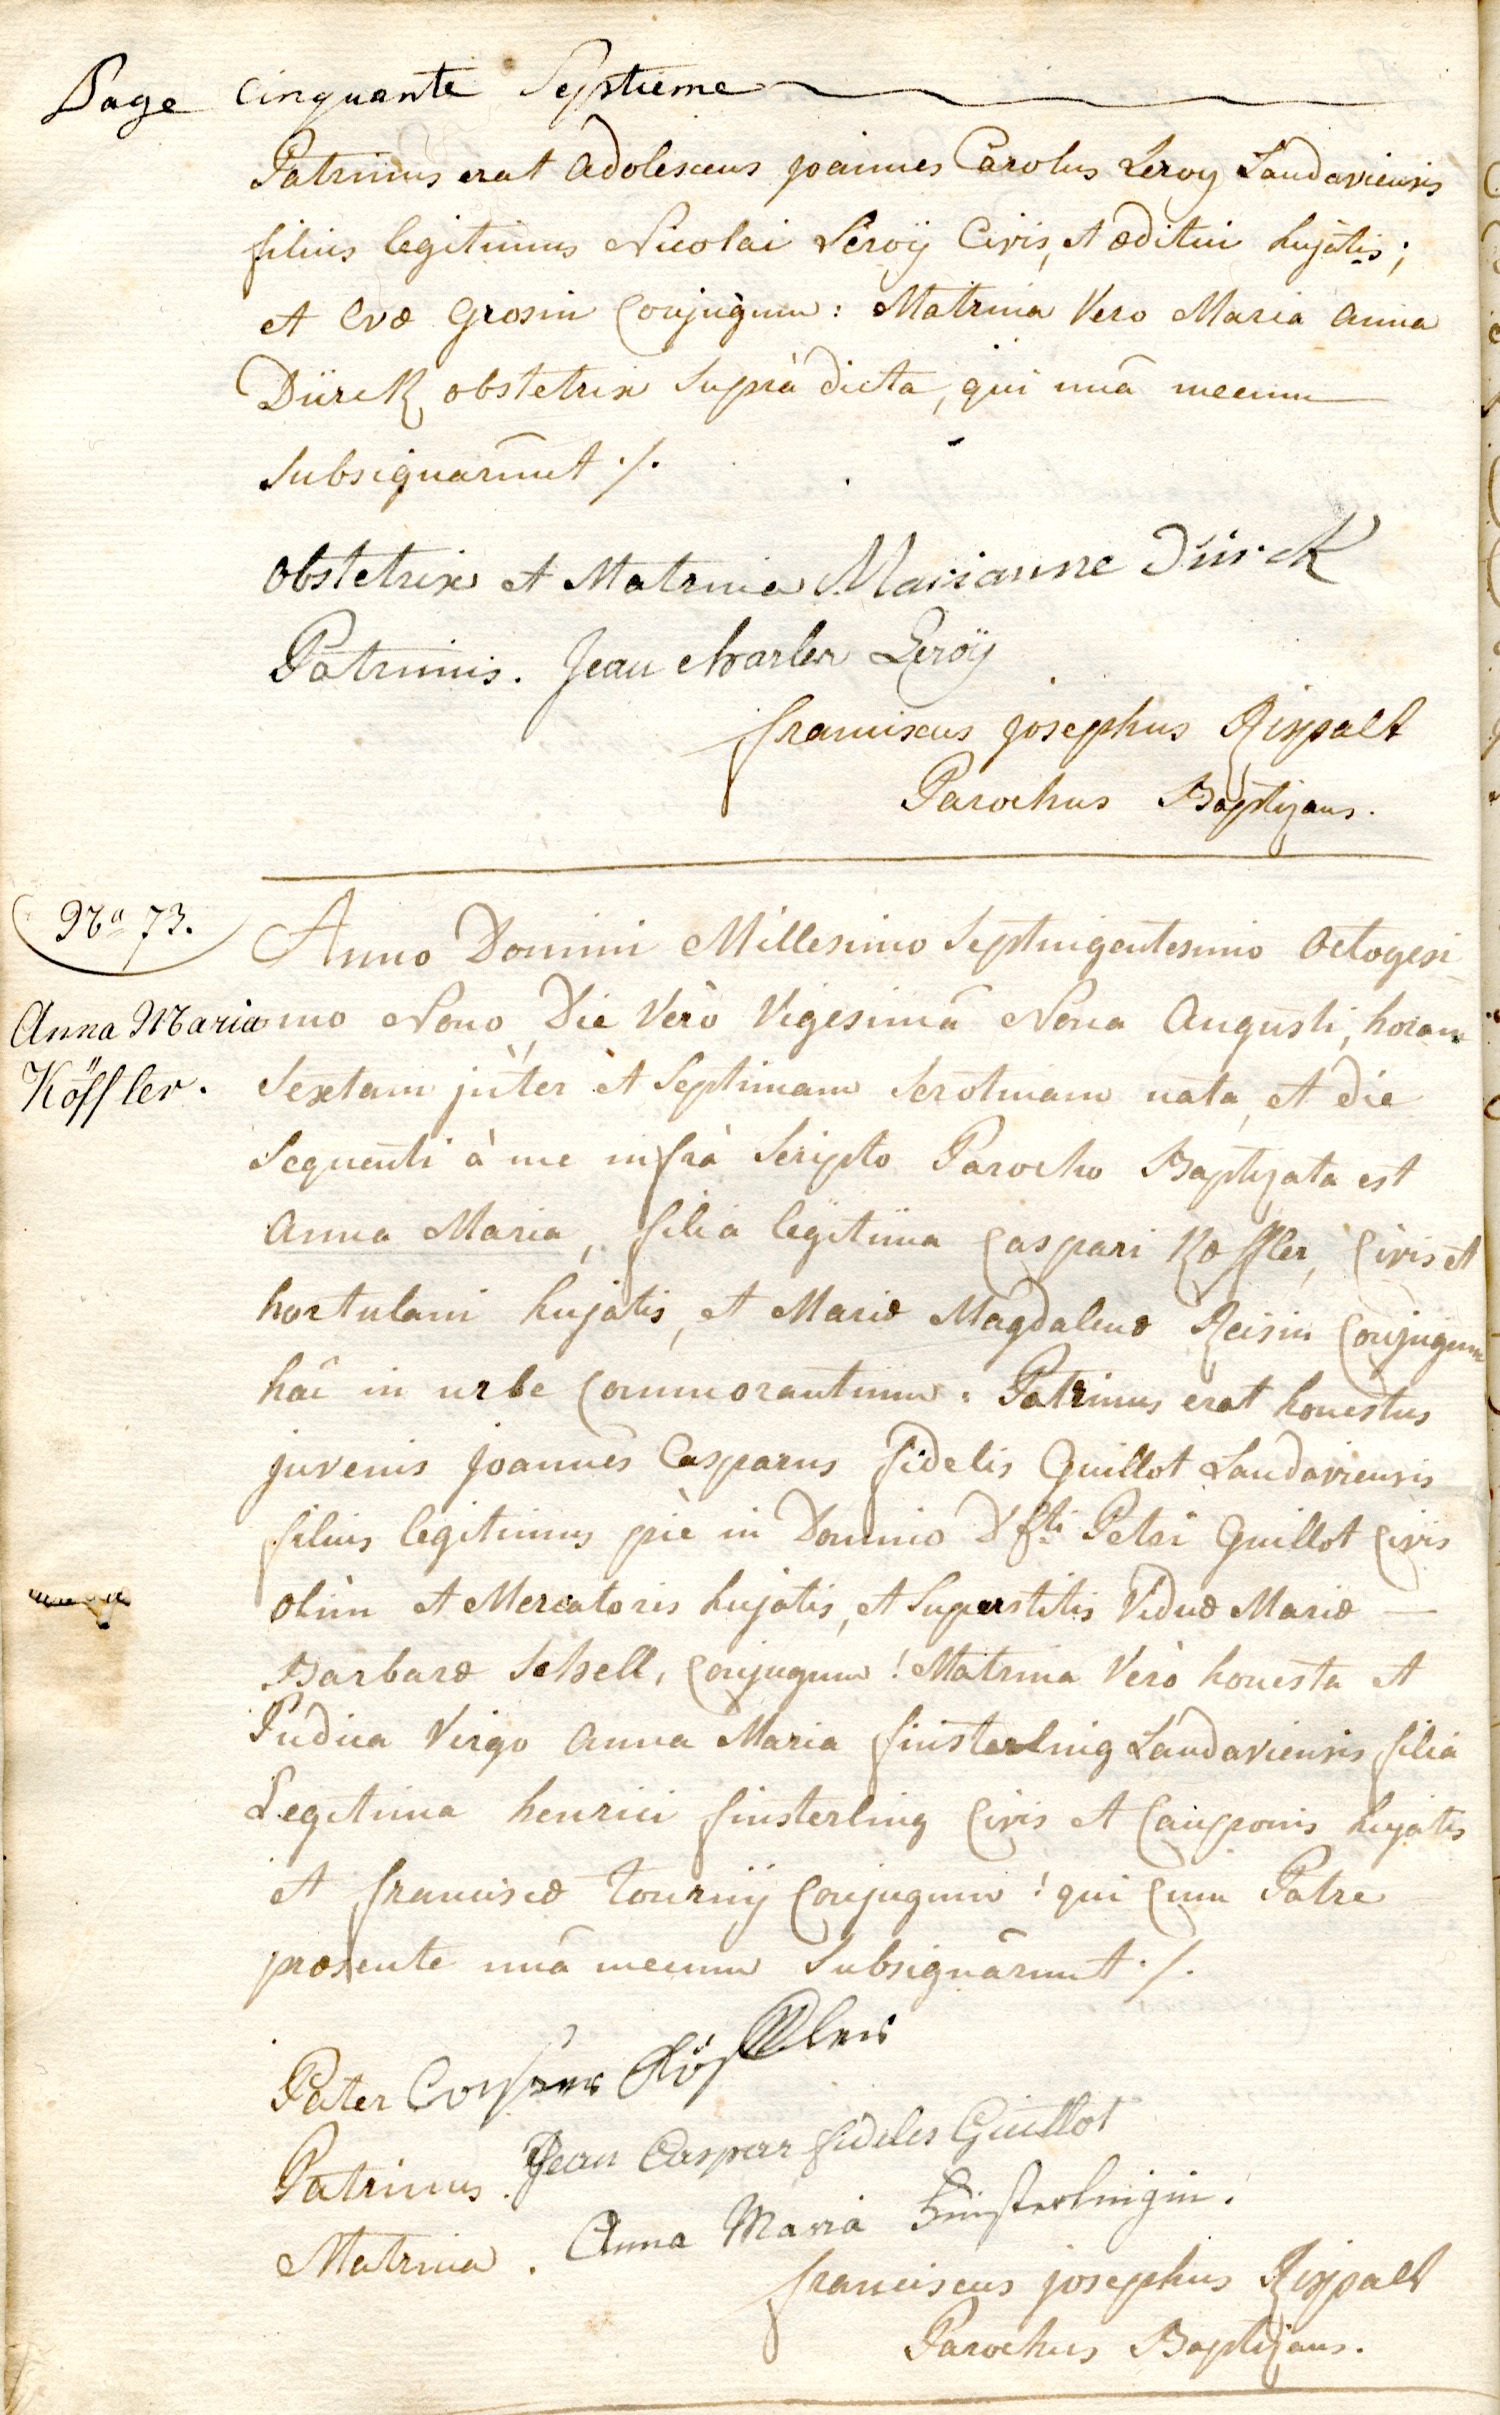 Page cinquante Septieme
Patrinus erat adolescens joannes Carolus Leroy Landaviensis
filius legitimus Nicolai Leroÿ Civis, et æditui hujàtis;
et Evæ Grosin Conjugum: Matrina Vero Maria anna
Dürck obstetrix Suprà dicta, qui unâ mecum
Subsignarunt ./.
Obstetrix et Matrina Marianne Dürck
Patrinus. Jean charles Leroÿ
franciscus josephus Rispalt
Parochus Baptizans.
No 73.
Anna Maria
Köffler.
Anno Domini Millesimo Septingentesimo Octogesi
mo Nono, Die Verò Vigesimâ Nona Augusti, horam
Sextam jnter et Septimam Serotinam nata, et die
Sequenti à me infrà Scripto Parocho Baptizata est
Anna Maria, filia legitima Caspari Kœffler, Civis et
hortulani hujatis, et Mariæ Magdalenæ Reisin Conjugum
hâc in urbe Commorantium: Patrinus erat honestus
juvenis joannes Casparus fidelis Guillot Landaviensis
filius legitimus piè in Domino Dfti Petri Guillot Civis
olim et Mercatoris hujatis, et Superstitis Viduæ Mariæ
Barbaræ Schell, Conjugum! Matrina Verò honesta et
Pudica Virgo Anna Maria finsterling Landaviensis filia
Legitima henrici finsterling Civis et Cauponis hujatis
et franciscæ Tourny Conjugum! qui Cum Patre
præsente unâ mecum Subsignârunt ./.
Pater Casper Köffler
Patrinus. Jean Caspar fideles Guillot
Matrina. Anna Maria Finsterlingin.
franciscus josephus Rispalt
Parochus Baptizans.